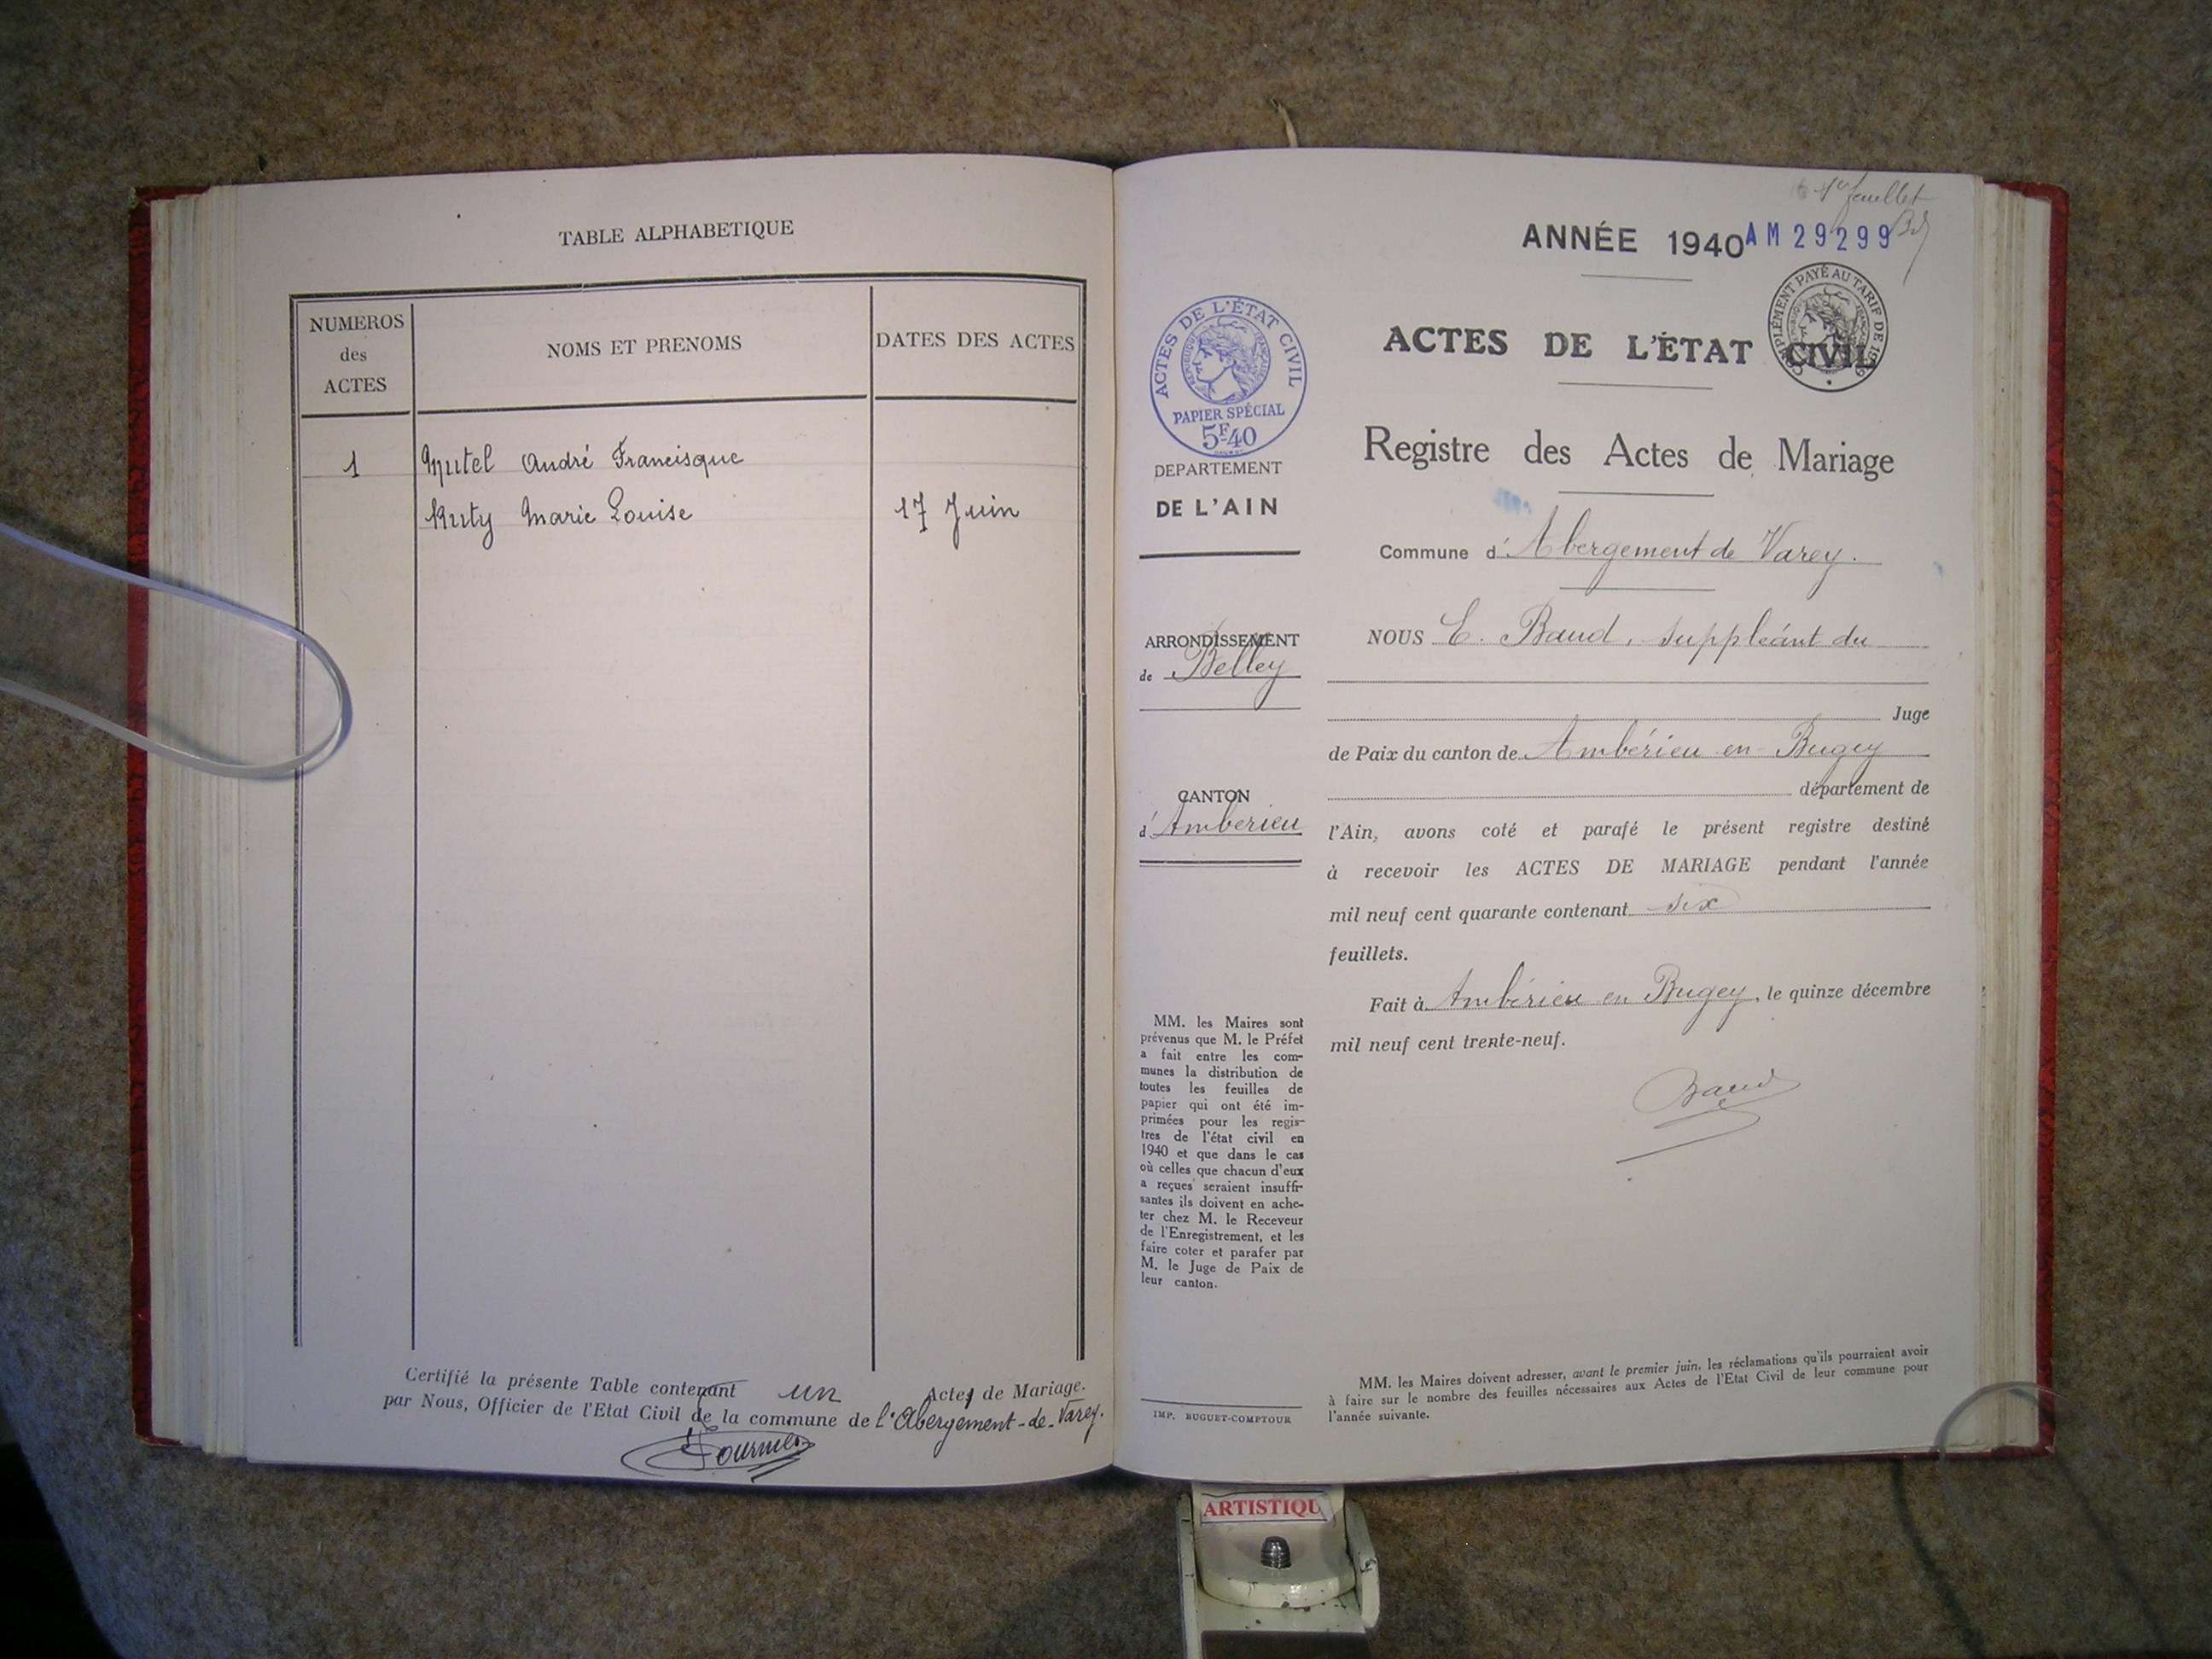 TABLE ALPHABETIQUE
NUMEROS
des
ACTES
NOMS ET PRENOMS
DATES DES ACTES
1
Mutel André Francisque
Ruty Marie Louise
17 Juin
Certifié la présente Table contenant un Actes de Mariage.
par Nous, Officier de l'Etat Civil de la commune de l'Abergement-de-Varey.
1er feuillet
ANNÉE 1940
AM 29299
ACTES DE L'ÉTAT CIVIL
PAPIER SPÉCIAL
5F40
COMPLÉMENT PAYÉ AU TARIF DE 1939
DEPARTEMENT
DE L'AIN
ARRONDISSEMENT
de Belley
CANTON
d'Ambérieu
MM. les Maires sont
prévenus que M. le Préfet
a fait entre les com-
munes la distribution de
toutes les feuilles de
papier qui ont été im-
primées pour les regis-
tres de l'état civil en
1940 et que dans le cas
où celles que chacun d'eux
a reçues seraient insuffi-
santes ils doivent en ache-
ter chez M. le Receveur
de l'Enregistrement, et les
faire coter et parafer par
M. le Juge de Paix de
leur canton.
IMP. BUGUET-COMPTOUR
ACTES DE L'ÉTAT CIVIL
Registre des Actes de Mariage
Commune d'Abergement de Varey.
NOUS E. Baud, suppléant du
Juge
de Paix du canton de Ambérieu en Bugey
département de
l'Ain, avons coté et parafé le présent registre destiné
à recevoir les ACTES DE MARIAGE pendant l'année
mil neuf cent quarante contenant six
feuillets.
Fait à Ambérieu en Bugey, le quinze décembre
mil neuf cent trente-neuf.
Baud
MM. les Maires doivent adresser, avant le premier juin, les réclamations qu'ils pourraient avoir
à faire sur le nombre des feuilles nécessaires aux Actes de l'Etat Civil de leur commune pour
l'année suivante.
ARTISTIQU